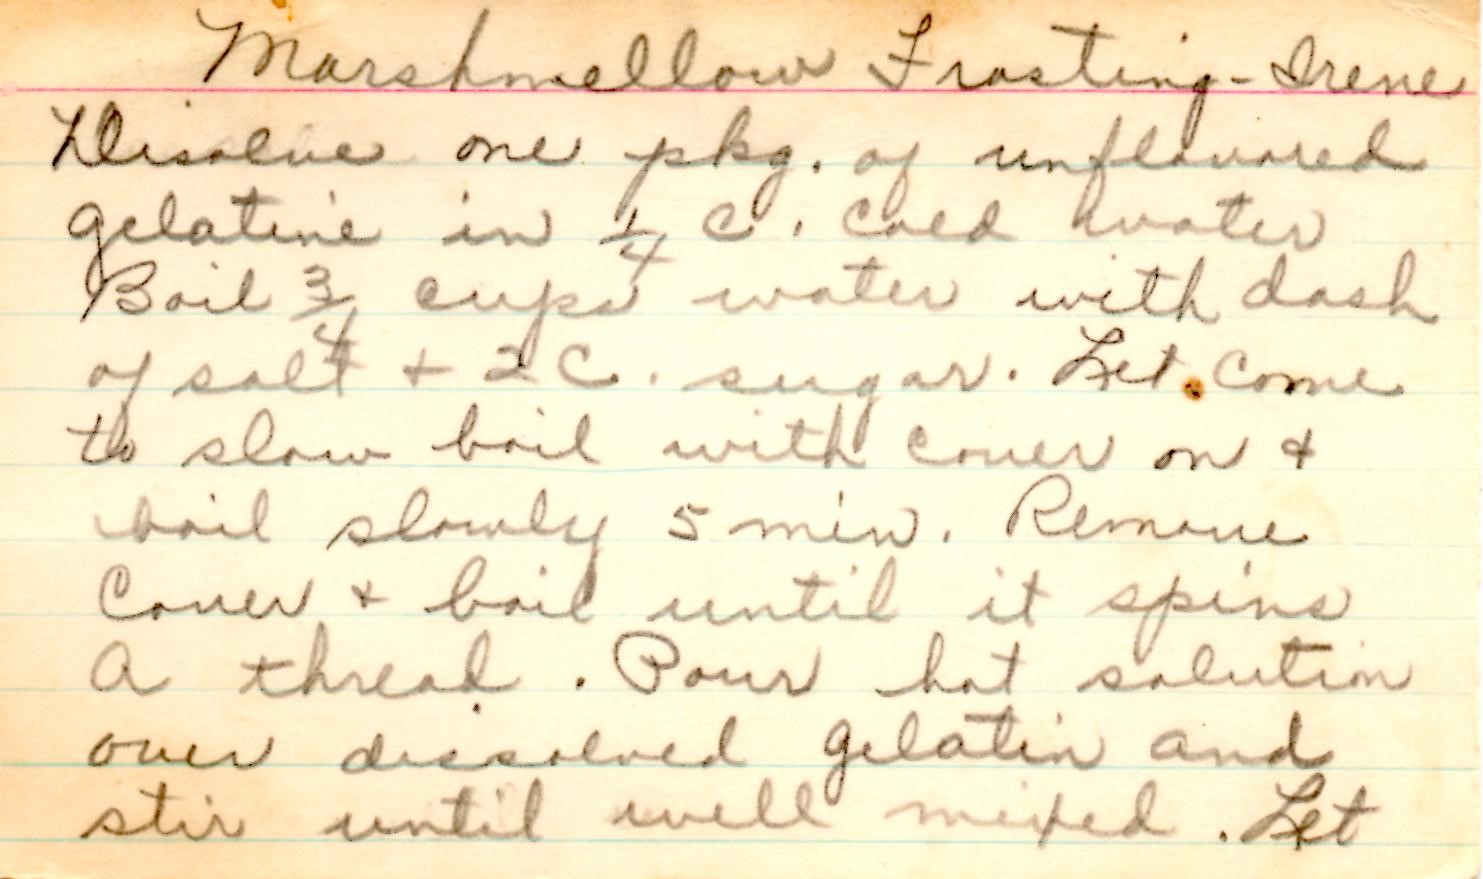 Marshmellow Frosting - Irene
Disolve one pkg. of unflavored
gelatine in 1/4 C. cold water
Boil 3/4 cups water with dash
of salt + 2 C. sugar. Let come
to slow boil with cover on +
boil slowly 5 min. Remove
Cover + boil until it spins
a thread. Pour hot solution
over dissolved gelatin and
stir until well mixed. Let